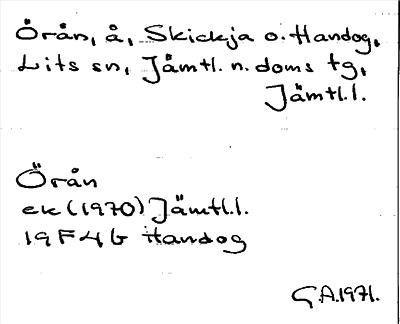 Örån, å, Skickja o. Handog,
Lits sn, Jämtl. n. doms tg,
Jämtl.l.
Örån
ek (1970) Jämtl.l.
19F4b Handog
G.A.1971.